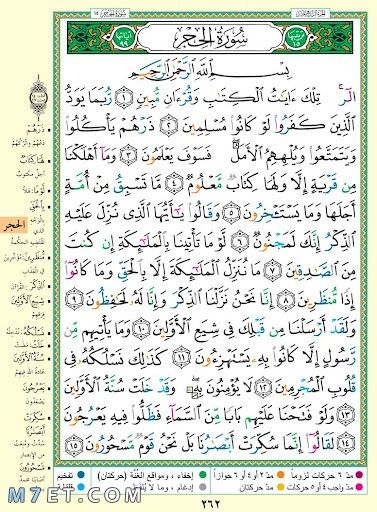 سُورَةُ الحِجْرِ
بِسْمِ اللَّهِ الرَّحْمَٰنِ الرَّحِيمِ
الٓر ۚ تِلْكَ ءَايَٰتُ الْكِتَٰبِ وَقُرْءَانٍ مُّبِينٍ ١ رُّبَمَا يَوَدُّ
الَّذِينَ كَفَرُوا لَوْ كَانُوا مُسْلِمِينَ ٢ ذَرْهُمْ يَأْكُلُوا
وَيَتَمَتَّعُوا وَيُلْهِهِمُ الْأَمَلُ ۖ فَسَوْفَ يَعْلَمُونَ ٣ وَمَا أَهْلَكْنَا
مِن قَرْيَةٍ إِلَّا وَلَهَا كِتَابٌ مَّعْلُومٌ ٤ مَّا تَسْبِقُ مِنْ أُمَّةٍ
أَجَلَهَا وَمَا يَسْتَـْٔخِرُونَ ٥ وَقَالُوا يَٰٓأَيُّهَا الَّذِي نُزِّلَ عَلَيْهِ
الذِّكْرُ إِنَّكَ لَمَجْنُونٌ ٦ لَّوْ مَا تَأْتِينَا بِالْمَلَٰٓئِكَةِ إِن كُنتَ
مِنَ الصَّٰدِقِينَ ٧ مَا نُنَزِّلُ الْمَلَٰٓئِكَةَ إِلَّا بِالْحَقِّ وَمَا كَانُوٓا
إِذًا مُّنظَرِينَ ٨ إِنَّا نَحْنُ نَزَّلْنَا الذِّكْرَ وَإِنَّا لَهُۥ لَحَٰفِظُونَ ٩
وَلَقَدْ أَرْسَلْنَا مِن قَبْلِكَ فِي شِيَعِ الْأَوَّلِينَ ١٠ وَمَا يَأْتِيهِم مِّن
رَّسُولٍ إِلَّا كَانُوا بِهِۦ يَسْتَهْزِءُونَ ١١ كَذَٰلِكَ نَسْلُكُهُۥ فِي
قُلُوبِ الْمُجْرِمِينَ ١٢ لَا يُؤْمِنُونَ بِهِۦ ۖ وَقَدْ خَلَتْ سُنَّةُ الْأَوَّلِينَ
١٣ وَلَوْ فَتَحْنَا عَلَيْهِم بَابًا مِّنَ السَّمَآءِ فَظَلُّوا فِيهِ يَعْرُجُونَ
١٤ لَقَالُوٓا إِنَّمَا سُكِّرَتْ أَبْصَٰرُنَا بَلْ نَحْنُ قَوْمٌ مَّسْحُورُونَ ١٥
الحجر
ذَرْهُمْ
مُنظَرِينَ
شِيَعِ الأَوَّلِينَ
نَسْلُكُهُ
خَلَتْ
سُنَّةُ الأَوَّلِينَ
يَعْرُجُونَ
سُكِّرَتْ
أَبْصَارُنَا
مد ٦ حركات لزوماً مد ٢ أو ٤ أو ٦ جوازاً إخفاء، ومواقع الغُنَّة (حركتان) تفخيم
مد واجب ٤ أو ٥ حركات مد حركتان إدغام، وما لا يُلفظ قلقلة
٢٦٢
M7ET.COM